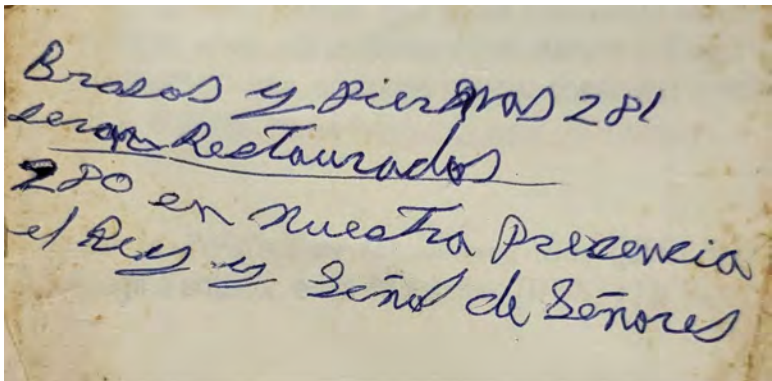 Brasos y Piernas 281
seran Restaurados
280 en nuestra Presencia
el Rey y Señor de Señores